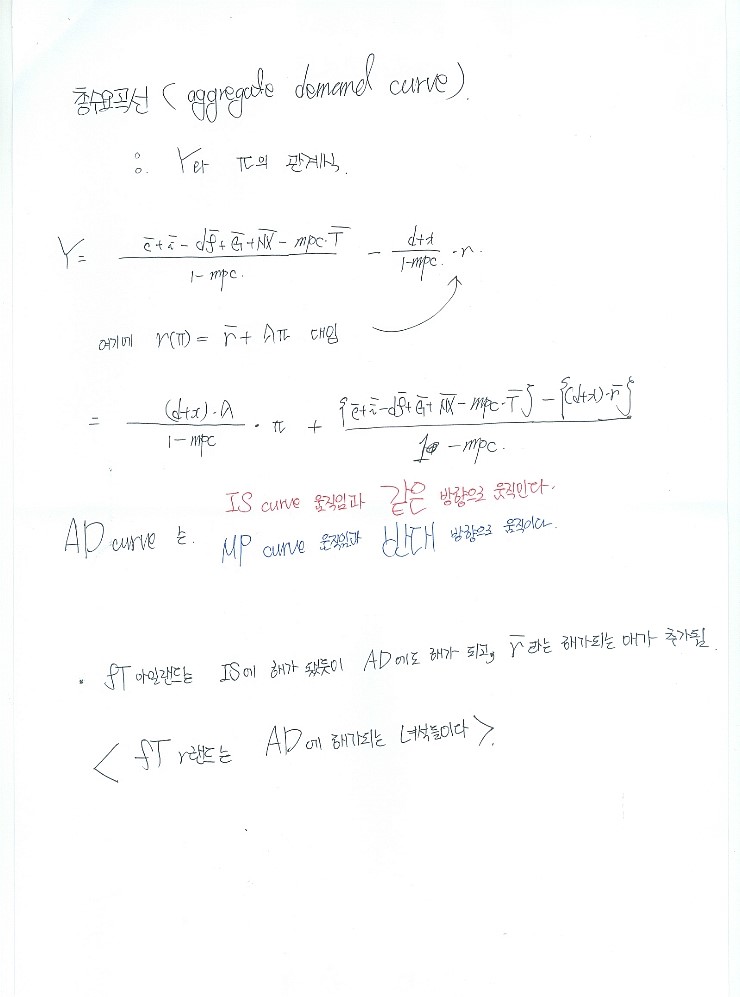 총수요곡선 ( aggregate demand curve ).
: Y와 π의 관계식.
Y = (c̄ + ī - df̄ + Ḡ + N̄X̄ - mpc·T̄) / (1 - mpc.) - (d+x) / (1-mpc.) · r.
여기에 r(π) = r̄ + λπ 대입
= ((d+x)·λ) / (1-mpc) · π + ({c̄ + ī - df̄ + Ḡ + N̄X̄ - mpc·T̄} - {(d+x)·r̄}) / (1 - mpc.)
IS curve 움직임과 같은 방향으로 움직인다.
AD curve 는.
MP curve 움직임과 반대 방향으로 움직이다.
· fT 아일랜드는 IS에 해가 됐듯이 AD에도 해가 되고, r̄ 라는 해가되는 애가 추가됨.
< fT r랜드는 AD에 해가되는 녀석들이다 >.